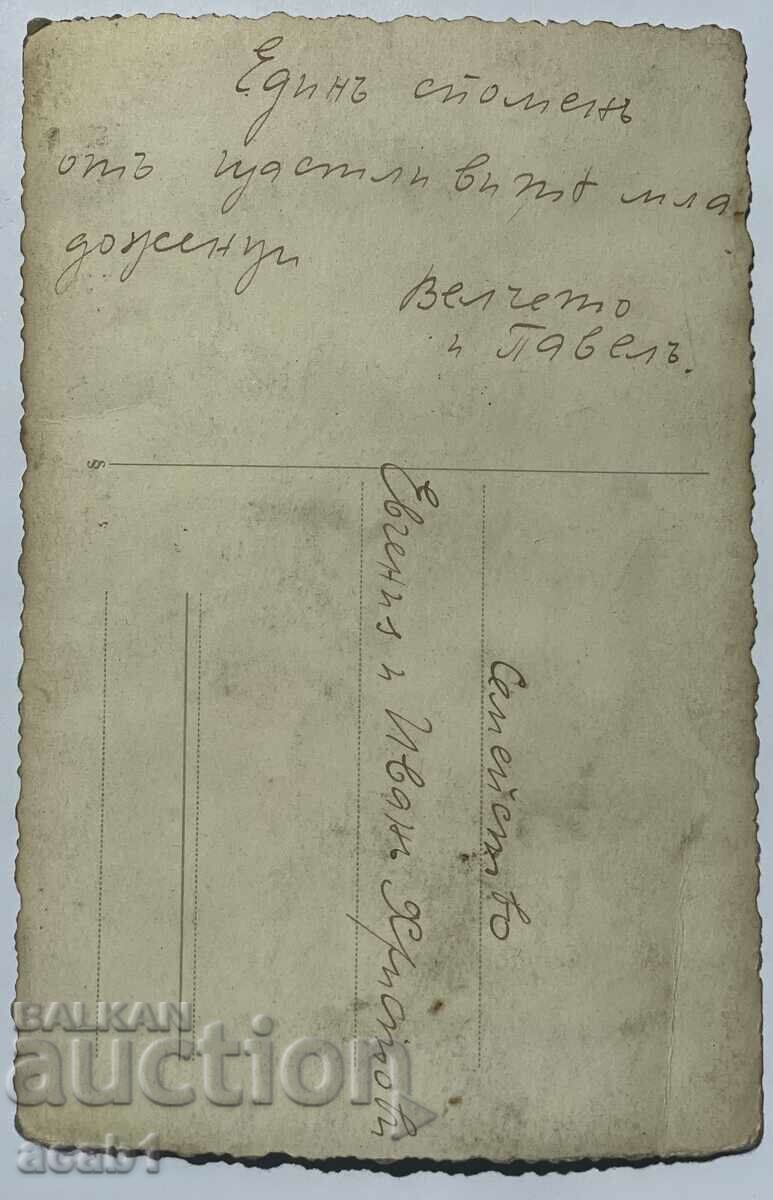 Единъ споменъ
отъ щастливитѣ мла-
доженци
Велчето
и Павелъ.
§
Семейство
Евгения и Иванъ Христови
BALKAN
auction
acab1